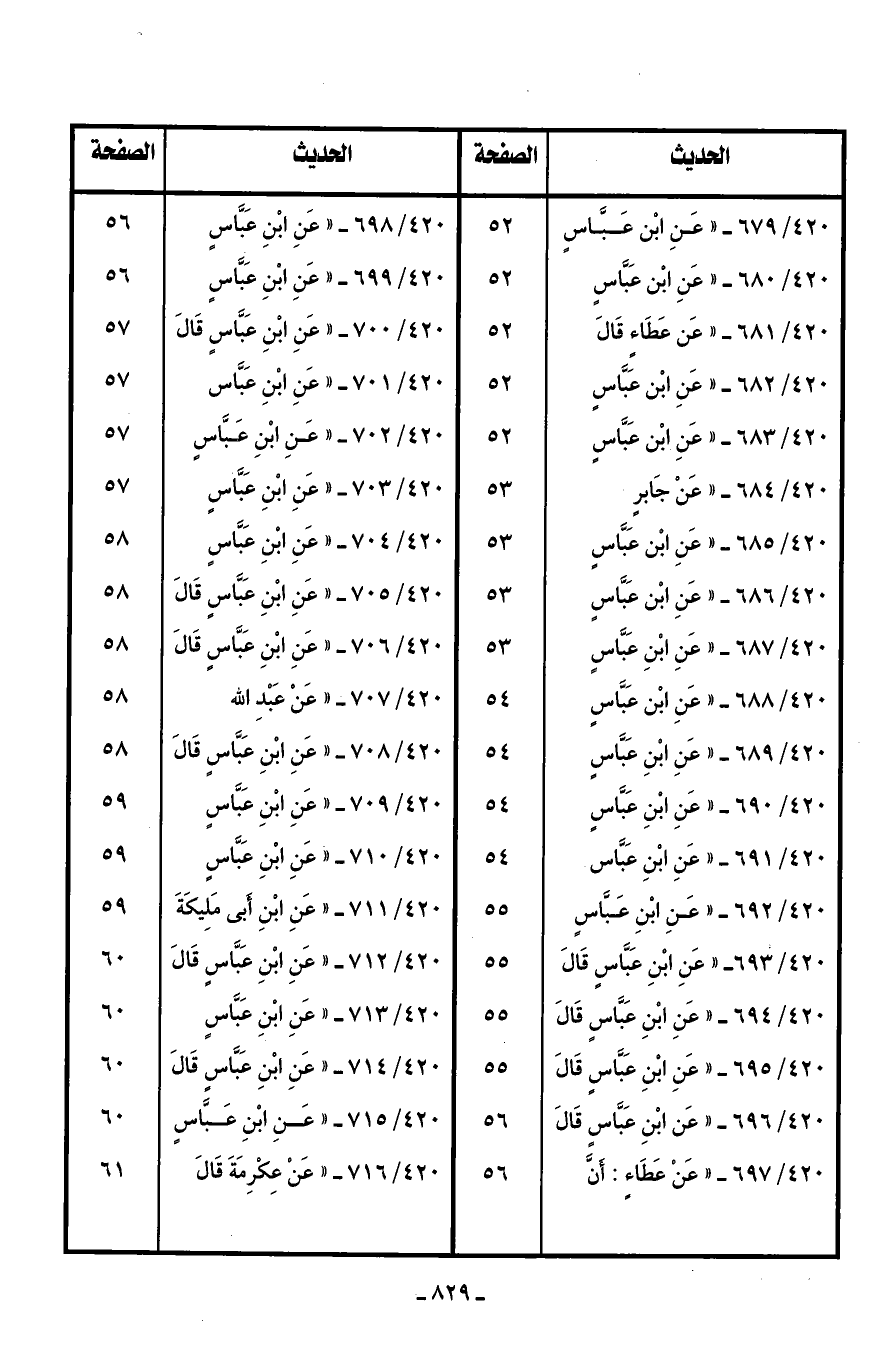 الحديث الصفحة الحديث الصفحة
٤٢٠/ ٦٧٩ ـ « عَـنِ ابْنِ عَــبَّـاسٍ ٥٢
٤٢٠/ ٦٨٠ ـ « عَنِ ابْنِ عَبَّاسٍ ٥٢
٤٢٠/ ٦٨١ ـ « عَن عَطَاءٍ قَالَ ٥٢
٤٢٠/ ٦٨٢ ـ « عَنِ ابْنِ عَبَّاسٍ ٥٢
٤٢٠/ ٦٨٣ ـ « عَنِ ابْنِ عَبَّاسٍ ٥٢
٤٢٠/ ٦٨٤ ـ « عَنْ جَابرٍ ٥٣
٤٢٠/ ٦٨٥ ـ « عَنِ ابْنِ عَبَّاسٍ ٥٣
٤٢٠/ ٦٨٦ ـ « عَنِ ابْنِ عَبَّاسٍ ٥٣
٤٢٠/ ٦٨٧ ـ « عَنِ ابْنِ عَبَّاسٍ ٥٣
٤٢٠/ ٦٨٨ ـ « عَنِ ابْنِ عَبَّاسٍ ٥٤
٤٢٠/ ٦٨٩ ـ « عَنِ ابْنِ عَبَّاسٍ ٥٤
٤٢٠/ ٦٩٠ ـ « عَنِ ابْنِ عَبَّاسٍ ٥٤
٤٢٠/ ٦٩١ ـ « عَنِ ابْنِ عَبَّاسٍ ٥٤
٤٢٠/ ٦٩٢ ـ « عَـنِ ابْنِ عَـبَّاسٍ ٥٥
٤٢٠/ ٦٩٣ـ « عَنِ ابْنِ عَبَّاسٍ قَالَ ٥٥
٤٢٠/ ٦٩٤ ـ « عَنِ ابْنِ عَبَّاسٍ قَالَ ٥٥
٤٢٠/ ٦٩٥ ـ « عَنِ ابْنِ عَبَّاسٍ قَالَ ٥٥
٤٢٠/ ٦٩٦ ـ « عَنِ ابْنِ عَبَّاسٍ قَالَ ٥٦
٤٢٠/ ٦٩٧ ـ « عَنْ عَطَاءٍ : أَنَّ ٥٦
٤٢٠/ ٦٩٨ ـ « عَنِ ابْنِ عَبَّاسٍ ٥٦
٤٢٠/ ٦٩٩ ـ « عَنِ ابْنِ عَبَّاسٍ ٥٦
٤٢٠/ ٧٠٠ ـ « عَنِ ابْنِ عَبَّاسٍ قَالَ ٥٧
٤٢٠/ ٧٠١ ـ « عَنِ ابْنِ عَبَّاسٍ ٥٧
٤٢٠/ ٧٠٢ ـ « عَـنِ ابْنِ عَـبَّاسٍ ٥٧
٤٢٠/ ٧٠٣ ـ « عَنِ ابْنِ عَبَّاسٍ ٥٧
٤٢٠/ ٧٠٤ ـ « عَنِ ابْنِ عَبَّاسٍ ٥٨
٤٢٠/ ٧٠٥ ـ « عَنِ ابْنِ عَبَّاسٍ قَالَ ٥٨
٤٢٠/ ٧٠٦ ـ « عَنِ ابْنِ عَبَّاسٍ قَالَ ٥٨
٤٢٠/ ٧٠٧ ـ « عَنْ عَبْدِ الله ٥٨
٤٢٠/ ٧٠٨ ـ « عَنِ ابْنِ عَبَّاسٍ قَالَ ٥٨
٤٢٠/ ٧٠٩ ـ « عَنِ ابْنِ عَبَّاسٍ ٥٩
٤٢٠/ ٧١٠ ـ « عَنِ ابْنِ عَبَّاسٍ ٥٩
٤٢٠/ ٧١١ ـ « عَنِ ابْنِ أَبى مَلِيكَةَ ٥٩
٤٢٠/ ٧١٢ ـ « عَنِ ابْنِ عَبَّاسٍ قَالَ ٦٠
٤٢٠/ ٧١٣ ـ « عَنِ ابْنِ عَبَّاسٍ ٦٠
٤٢٠/ ٧١٤ ـ « عَنِ ابْنِ عَبَّاسٍ قَالَ ٦٠
٤٢٠/ ٧١٥ ـ « عَــنِ ابْنِ عَــبَّاسٍ ٦٠
٤٢٠/ ٧١٦ ـ « عَنْ عِكْرِمَةَ قَالَ ٦١
ـ ٨٢٩ ـ